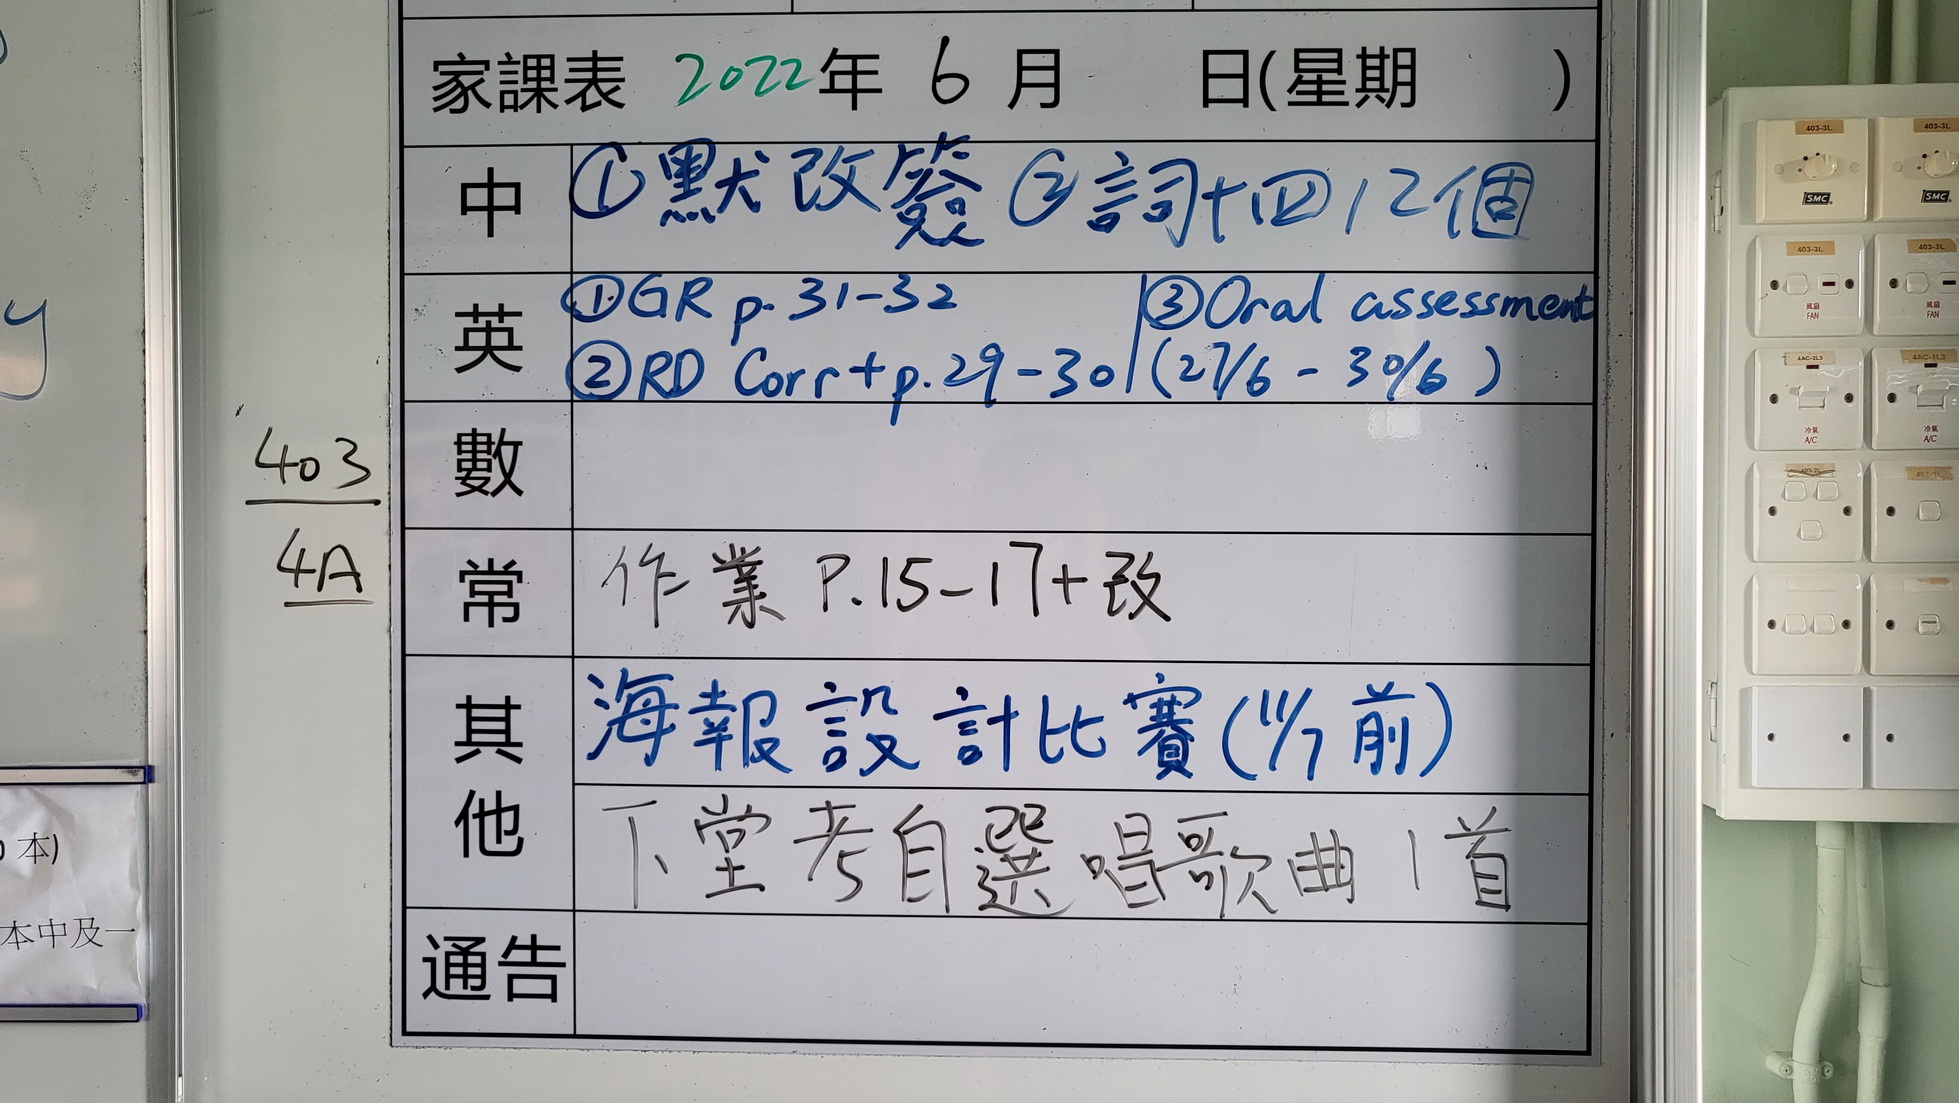 家課表 2022年 6 月 日(星期 )
中 ①默改簽 ②詞十四12個
英 ①GR p.31-32 ③Oral assessment
②RD Corr+p.29-30 (27/6 - 30/6)
數
常 作業 P.15-17+改
其他 海報設計比賽(11/7前)
下堂考自選唱歌曲1首
通告
403
4A
y
本)
本中及一
403-3L
403-3L
SMC
SMC
403-3L
403-3L
風扇
FAN
風扇
FAN
4AC-2L3
4AC-1L3
冷氣
A/C
冷氣
A/C
SMC